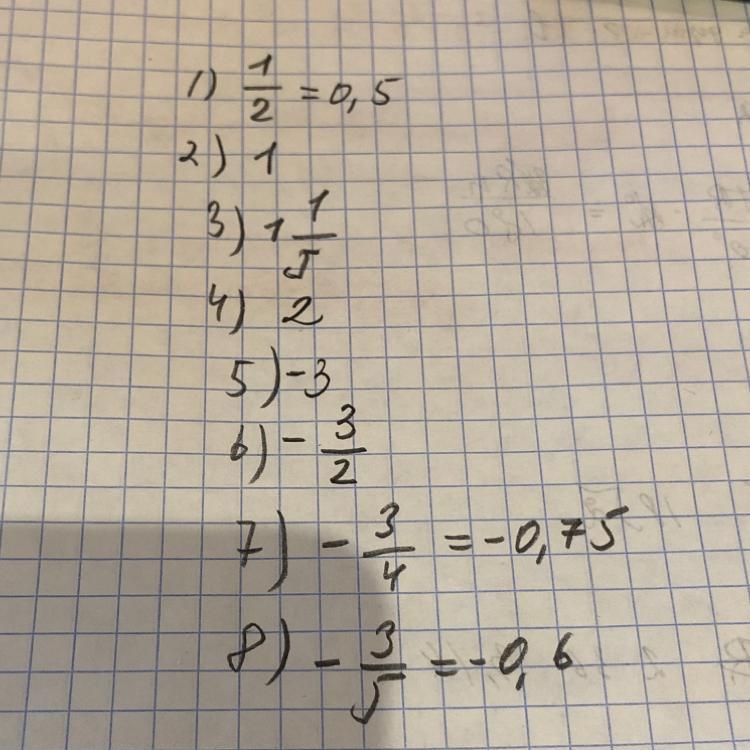 1) 1/2 = 0,5
2) 1
3) 1 1/5
4) 2
5) -3
6) - 3/2
7) - 3/4 = -0,75
8) - 3/5 = -0,6